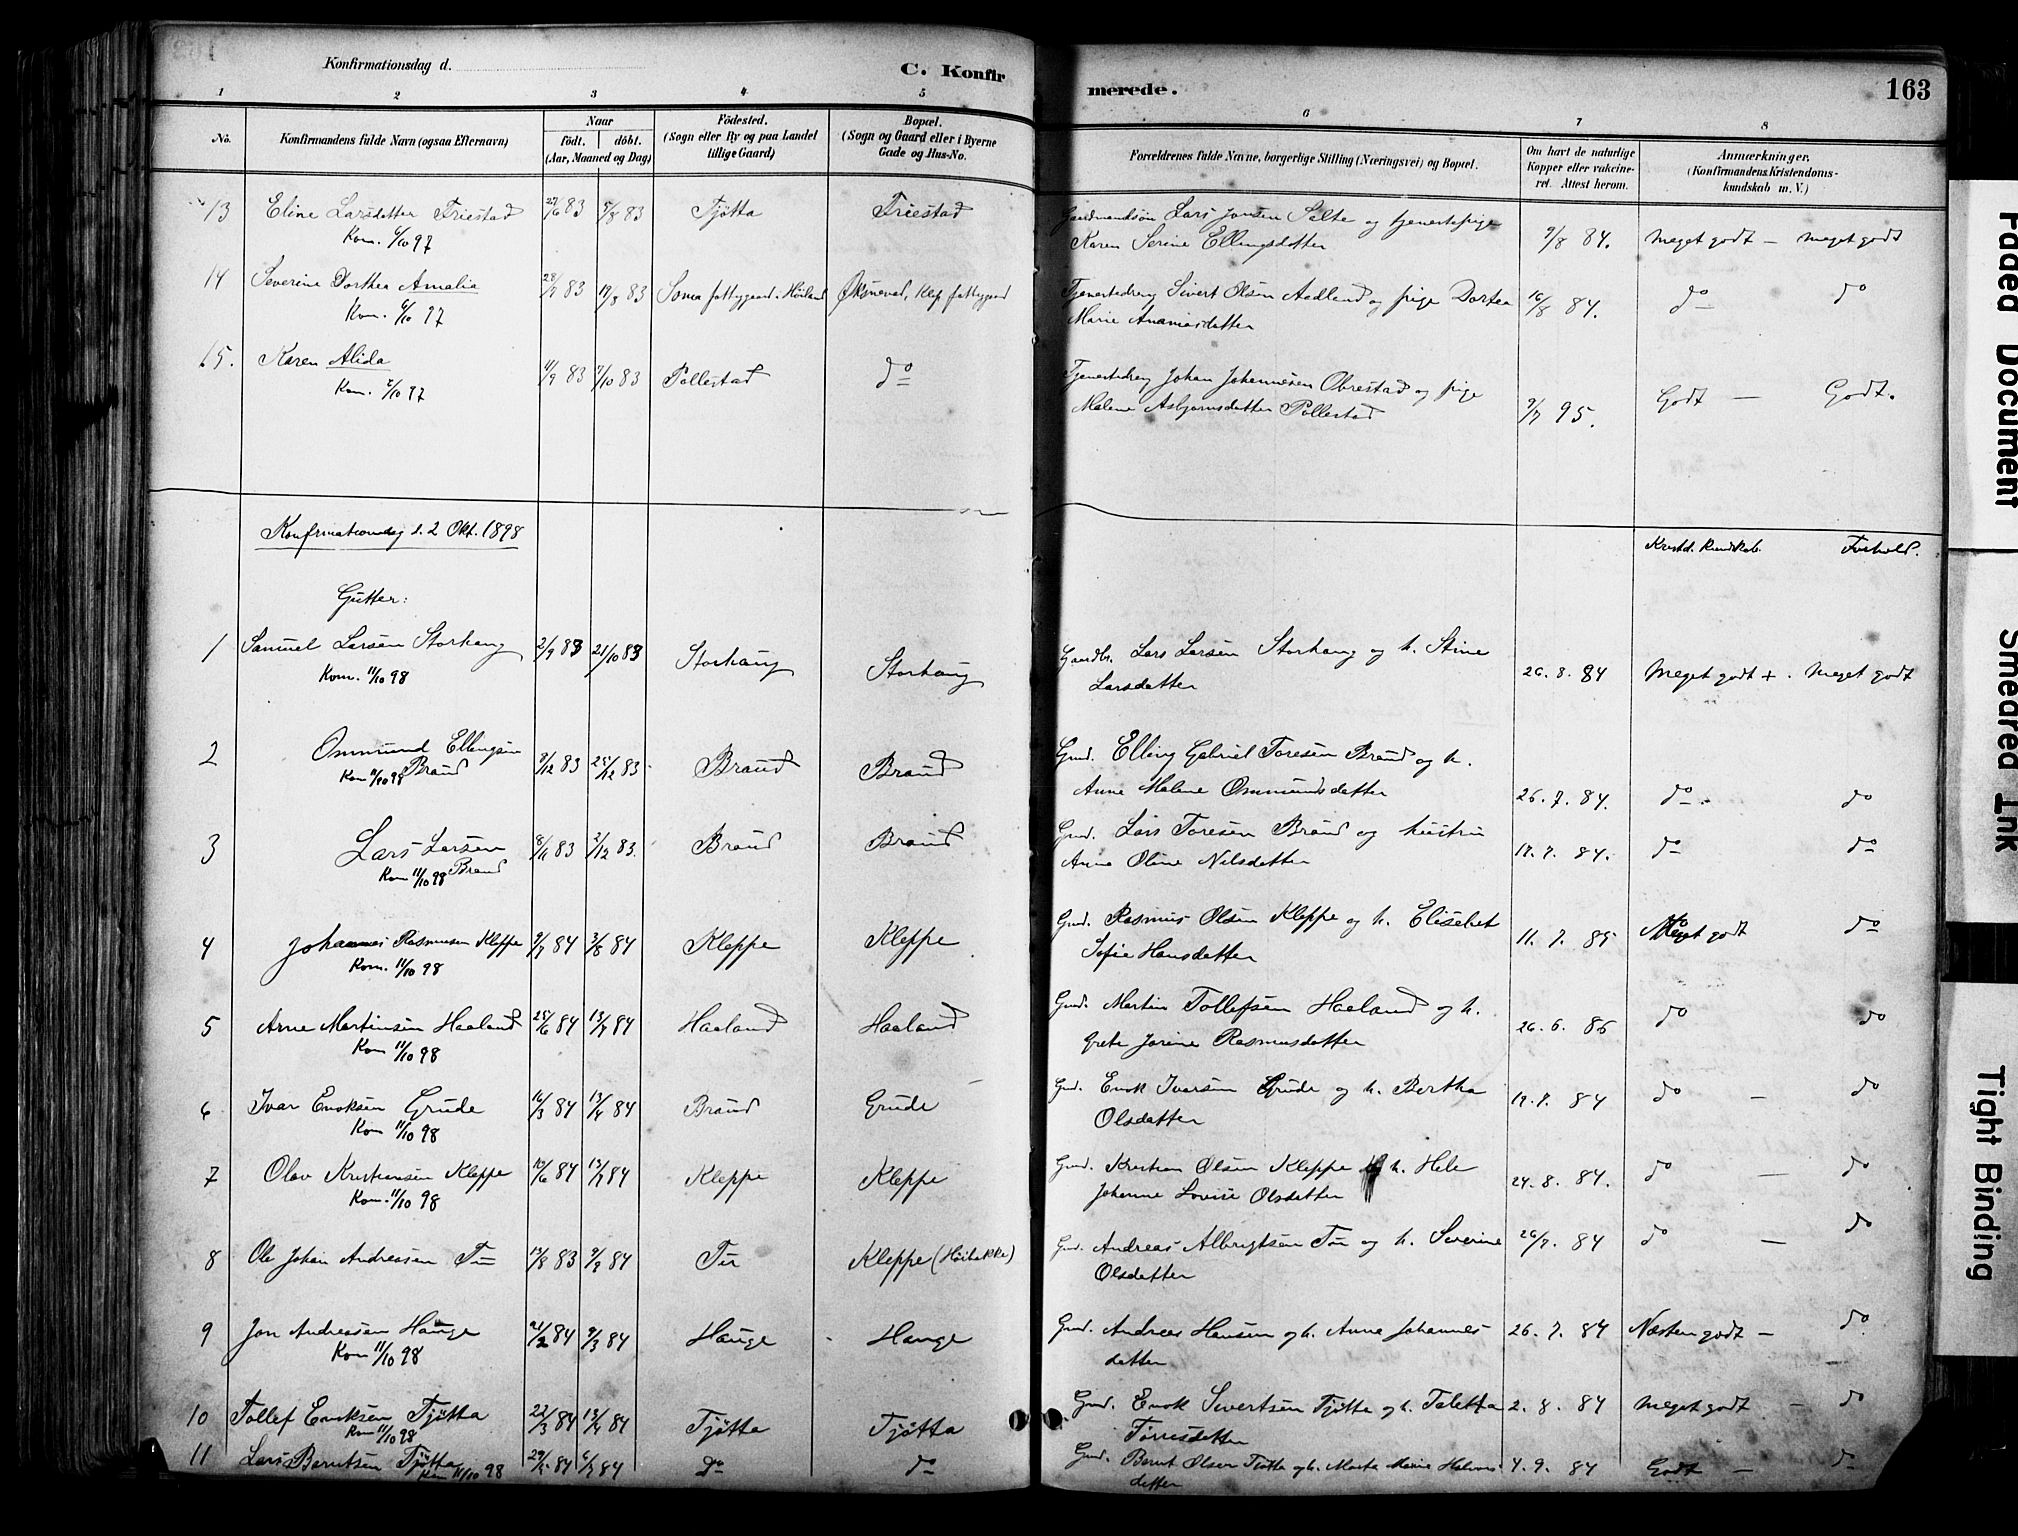 Konfirmationsdag d.
C. Konfir
merede.
163
1 2 3 4 5 6 7 8
No.
Konfirmandens fulde Navn (ogsaa Efternavn)
Naar
födt. döbt.
(Aar, Maaned og Dag)
Födested.
(Sogn eller By og paa Landet
tillige Gaard)
Bopæl.
(Sogn og Gaard eller i Byerne
Gade og Hus-No.
Forældrenes fulde Navne, borgerlige Stilling (Næringsvei) og Bopæl.
Om havt de naturlige
Kopper eller vakcine-
ret. Attest herom.
Anmærkninger.
(Konfirmandens Kristendoms-
kundskab m. V.)
13 Eline Larsdatter Friestad 27/6 83 5/8 83 Tjøtta Friestad Gaardmandsøn Lars Jonsen Salte og tjenestepige
Kom. 6/10 97 Karen Serine Ellingsdatter 9/8 84. Meget godt – Meget godt
14 Severine Dorthea Amalia 28/7 83 19/8 83 Soma fattiggaard i Høiland Øksnevad, Klep fattiggaard Tjenestedreng Sivert Olsen Aadland og pige Dortea
Kom. 6/10 97 Marie Ananiasdatter 16/8 84. do do
15. Karen Alida 11/9 83 7/10 83 Pollestad do Tjenestedreng Johan Johannesen Obrestad og pige
Kom. 6/10 97 Malene Asbjørnsdatter Pollestad 9/7 95. Godt – Godt.
Konfirmationsdag d. 2 Okt. 1898
Kristd. kundskab. Forhold.
Gutter:
1 Samuel Larsen Storhaug 2/9 83 21/10 83 Storhaug Storhaug Gaardbr. Lars Larsen Storhaug og h. Stine
Kom. 11/10 98 Larsdatter 26. 8. 84 Meget godt + . Meget godt
2 Ommund Ellingsen 9/12 83 25/12 83 Braud Braud Gmd. Elling Gabriel Toresen Braud og h.
Kom 11/10 98 Braud Anne Malene Ommundsdatter 26. 7. 84. do do
3 Lars Larsen 8/11 83 2/12 83. Braud Braud Gmd. Lars Toresen Braud og hustru
Kom 11/10 98 Braud Anna Oline Nilsdatter 17. 7. 84. do do
4 Johannes Rasmusen Kleppe 9/7 84 3/8 84 Kleppe Kleppe Gmd. Rasmus Olsen Kleppe og h. Eliselet
Kom. 11/10 98 Sofie Hansdatter 11. 7. 85 Meget godt do
5 Arne Martinsen Haaland 25/6 84 13/7 84 Haaland Haaland Gmd. Martin Tollefsen Haaland og h.
Kom 11/10 98 Grete Jorine Rasmusdatter 26. 6. 86 do do
6 Ivar Enoksen Grude 16/3 84 13/4 84 Braud Grude Gmd. Enok Ivarsen Grude og h. Bertha
Kom 11/10 98 Olsdatter 19. 7. 84 do – do
7 Olav Kristiansen Kleppe 10/6 84 13/7 84 Kleppe Kleppe Gmd. Kristian Olsen Kleppe h. Hele
Kom. 11/10 98 Johanne Lovise Olsdatter 24. 8. 84. do – do
8 Ole Johan Andreasen Tu 13/8 83 84 Tu Kleppe (Høibakke) Gmd. Andreas Albrigtsen Tu og h. Severine 26/7. 84 do – do
Olsdatter
9 Jon Andreasen Hauge 21/2 84 9/3 84 Hauge Hauge Gmd. Andreas Hansen og h. Anne Johannes 26. 7. 84 Næsten godt – do
Kom 11/10 98 datter
10 Tollef Enoksen Tjøtta 22/3 84 13/4 84 Tjøtta Tjøtta Gmd. Enok Sivertsen Tjøtta og h. Taletta 2. 8. 84 Meget godt – do
Kom 11/10 98 Torresdatter
11 Lars Berntsen Tjøtta 84 84 do do Gmd. Bernt Olsen Tjøtta og h. Marta Marie Halvors 4. 9. 84 Godt – do
Kom 11/10 98 datter
Faded Document
Smeared Ink
Tight Binding